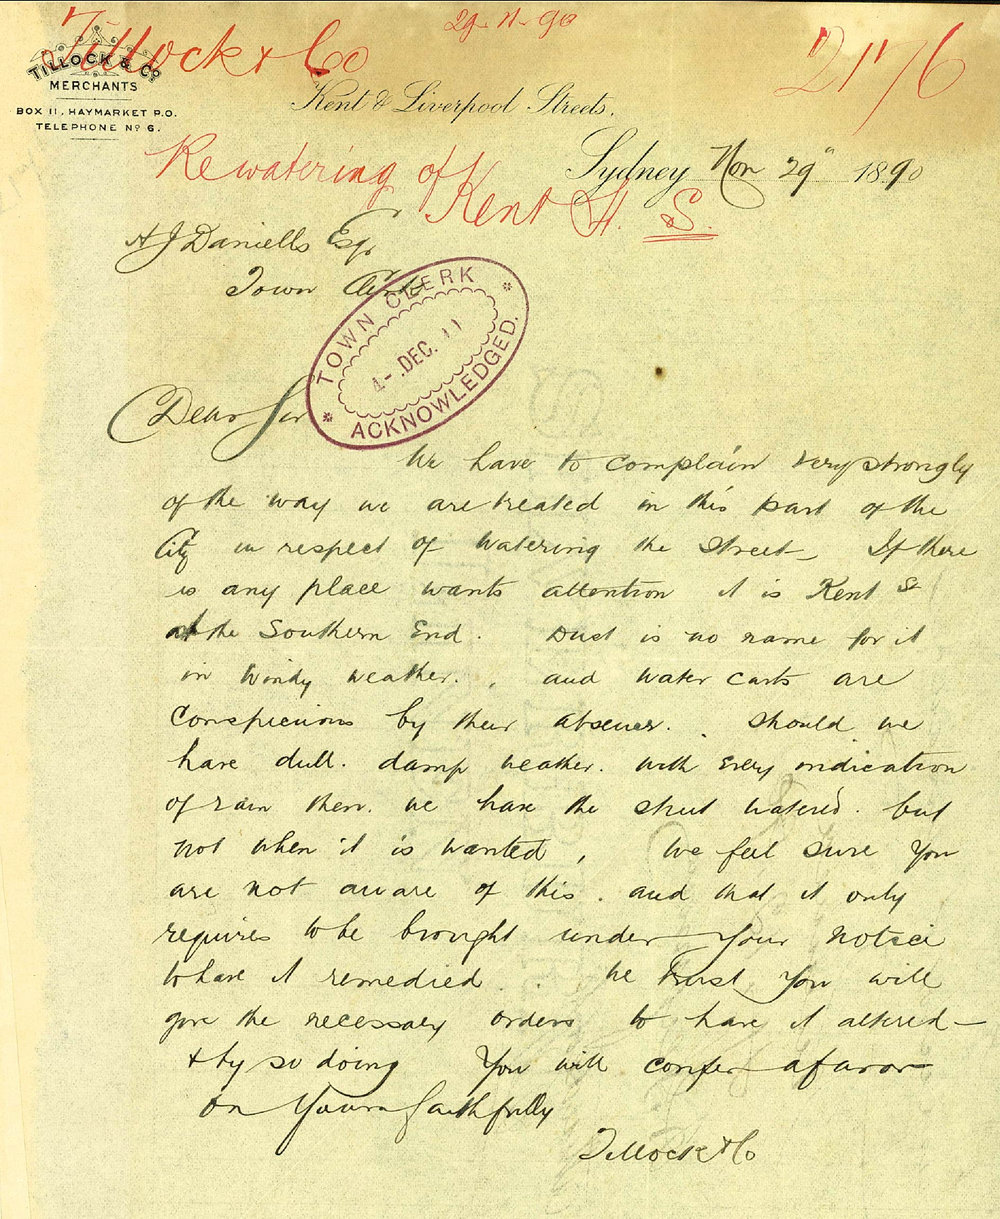 Tillock & Co
29-11-90
2176
TILLOCK & Co
MERCHANTS
BOX 11, HAYMARKET P.O.
TELEPHONE No 6.
Kent & Liverpool Streets,
Re watering of
Kent St. S.
Sydney Nov 29" 1890
A J Daniells Esqr
Town Clerk
TOWN CLERK
4-.DEC.
ACKNOWLEDGED.
Dear Sir
We have to complain very strongly
of the way we are treated in this part of the
City in respect of watering the street_ If there
is any place wants attention it is Kent St
at the Southern End. Dust is no name for it
in windy weather. . and water carts are
conspicuous by their absence. . Should we
have dull. damp weather. with every indication
of rain then. we have the street watered. but
not when it is wanted, We feel sure you
are not aware of this. and that it only
requires to be brought under your notice
to have it remedied . . We trust you will
give the necessary orders to have it altered_
& by so doing You will confer a favor
on Yours faithfully
Tillock & Co